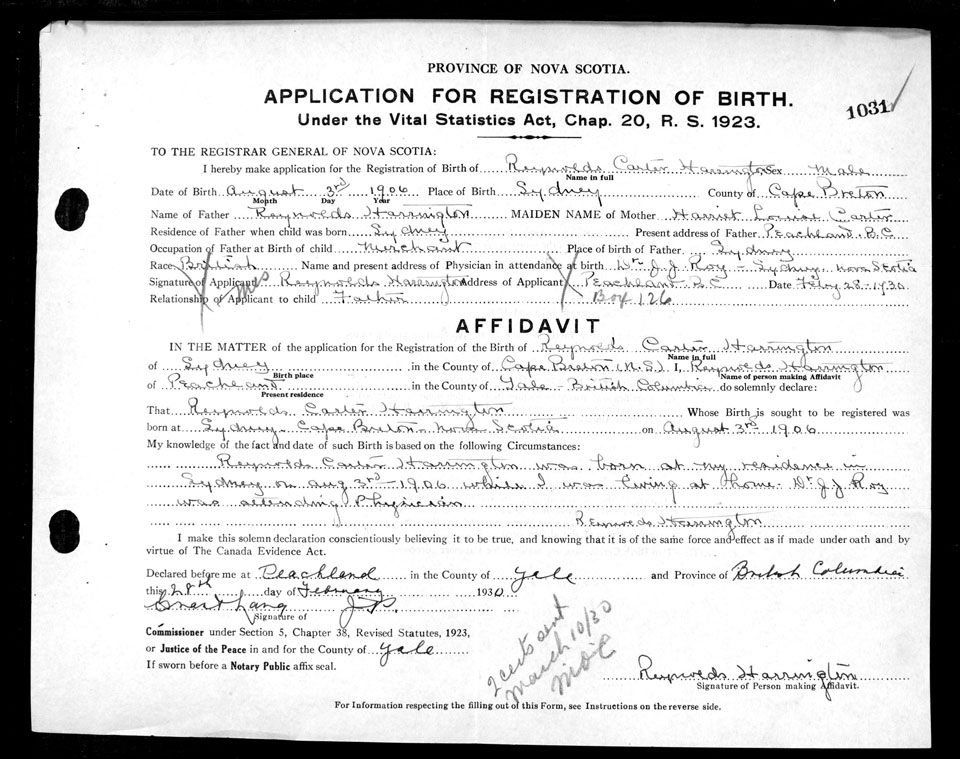 PROVINCE OF NOVA SCOTIA.
APPLICATION FOR REGISTRATION OF BIRTH.
1031
Under the Vital Statistics Act, Chap. 20, R. S. 1923.
TO THE REGISTRAR GENERAL OF NOVA SCOTIA:
I hereby make application for the Registration of Birth of Reynolds Carter Harrington Sex Male
Name in full
Date of Birth August 3rd 1906 Place of Birth Sydney County of Cape Breton
Month Day Year
Name of Father Reynolds Harrington MAIDEN NAME of Mother Harriet Louise Carter
Residence of Father when child was born Sydney Present address of Father Peachland, B.C
Occupation of Father at Birth of child Merchant Place of birth of Father Sydney
Race British Name and present address of Physician in attendance at birth Dr. J. J. Roy - Sydney, Nova Scotia
Signature of Applicant Reynolds Harrington Address of Applicant Peachland B.C Date Feby 28-1930
Relationship of Applicant to child Father Box 126
AFFIDAVIT
IN THE MATTER of the application for the Registration of the Birth of Reynolds Carter Harrington
Name in full
of Sydney in the County of Cape Breton (N.S.) I, Reynolds Harrington
Birth place Name of person making Affidavit
of Peachland in the County of Yale - British Columbia do solemnly declare:
Present residence
That Reynolds Carter Harrington Whose Birth is sought to be registered was
born at Sydney - Cape Breton - Nova Scotia on August 3rd 1906
My knowledge of the fact and date of such Birth is based on the following Circumstances:
Reynolds Carter Harrington was born at my residence in
Sydney on Aug 3rd - 1906 while I was living at home. Dr J J Roy
was attending Physician
Reynolds Harrington
I make this solemn declaration conscientiously believing it to be true, and knowing that it is of the same force and effect as if made under oath and by
virtue of The Canada Evidence Act.
Declared before me at Peachland in the County of Yale and Province of British Columbia
this 28th day of February 1930
J.P.
Signature of
Commissioner under Section 5, Chapter 38, Revised Statutes, 1923,
or Justice of the Peace in and for the County of Yale
If sworn before a Notary Public affix seal.
2 certs sent
March 10/30
Reynolds Harrington
Signature of Person making Affidavit.
For Information respecting the filling out of this Form, see Instructions on the reverse side.